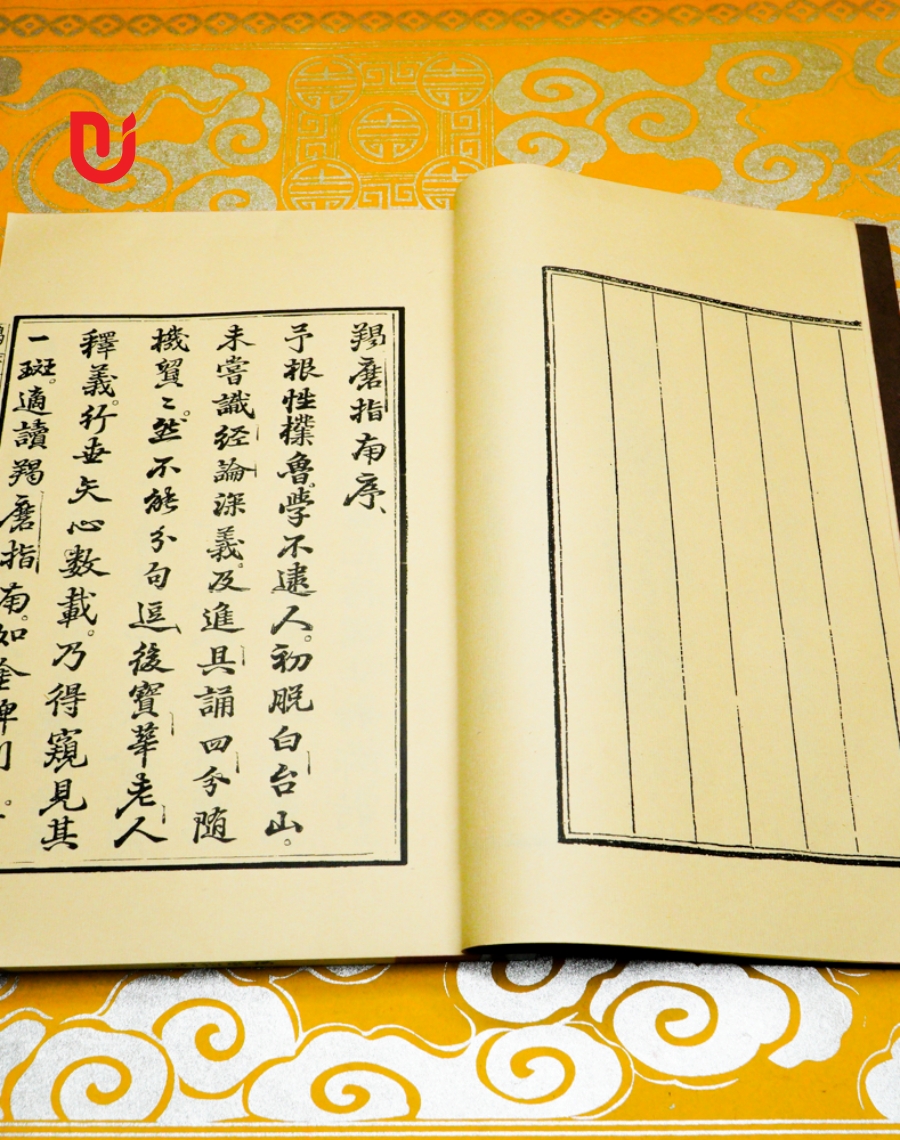 羯磨指南序
予根性樸魯。學不逮人。初脫白台山。
未嘗識経論深義。及進具誦四分隨
機貿〻。然不能分句逗。後寶華老人
釋義。行垂矢心数載。乃得窺見其
一斑。適讀羯磨指南。如金